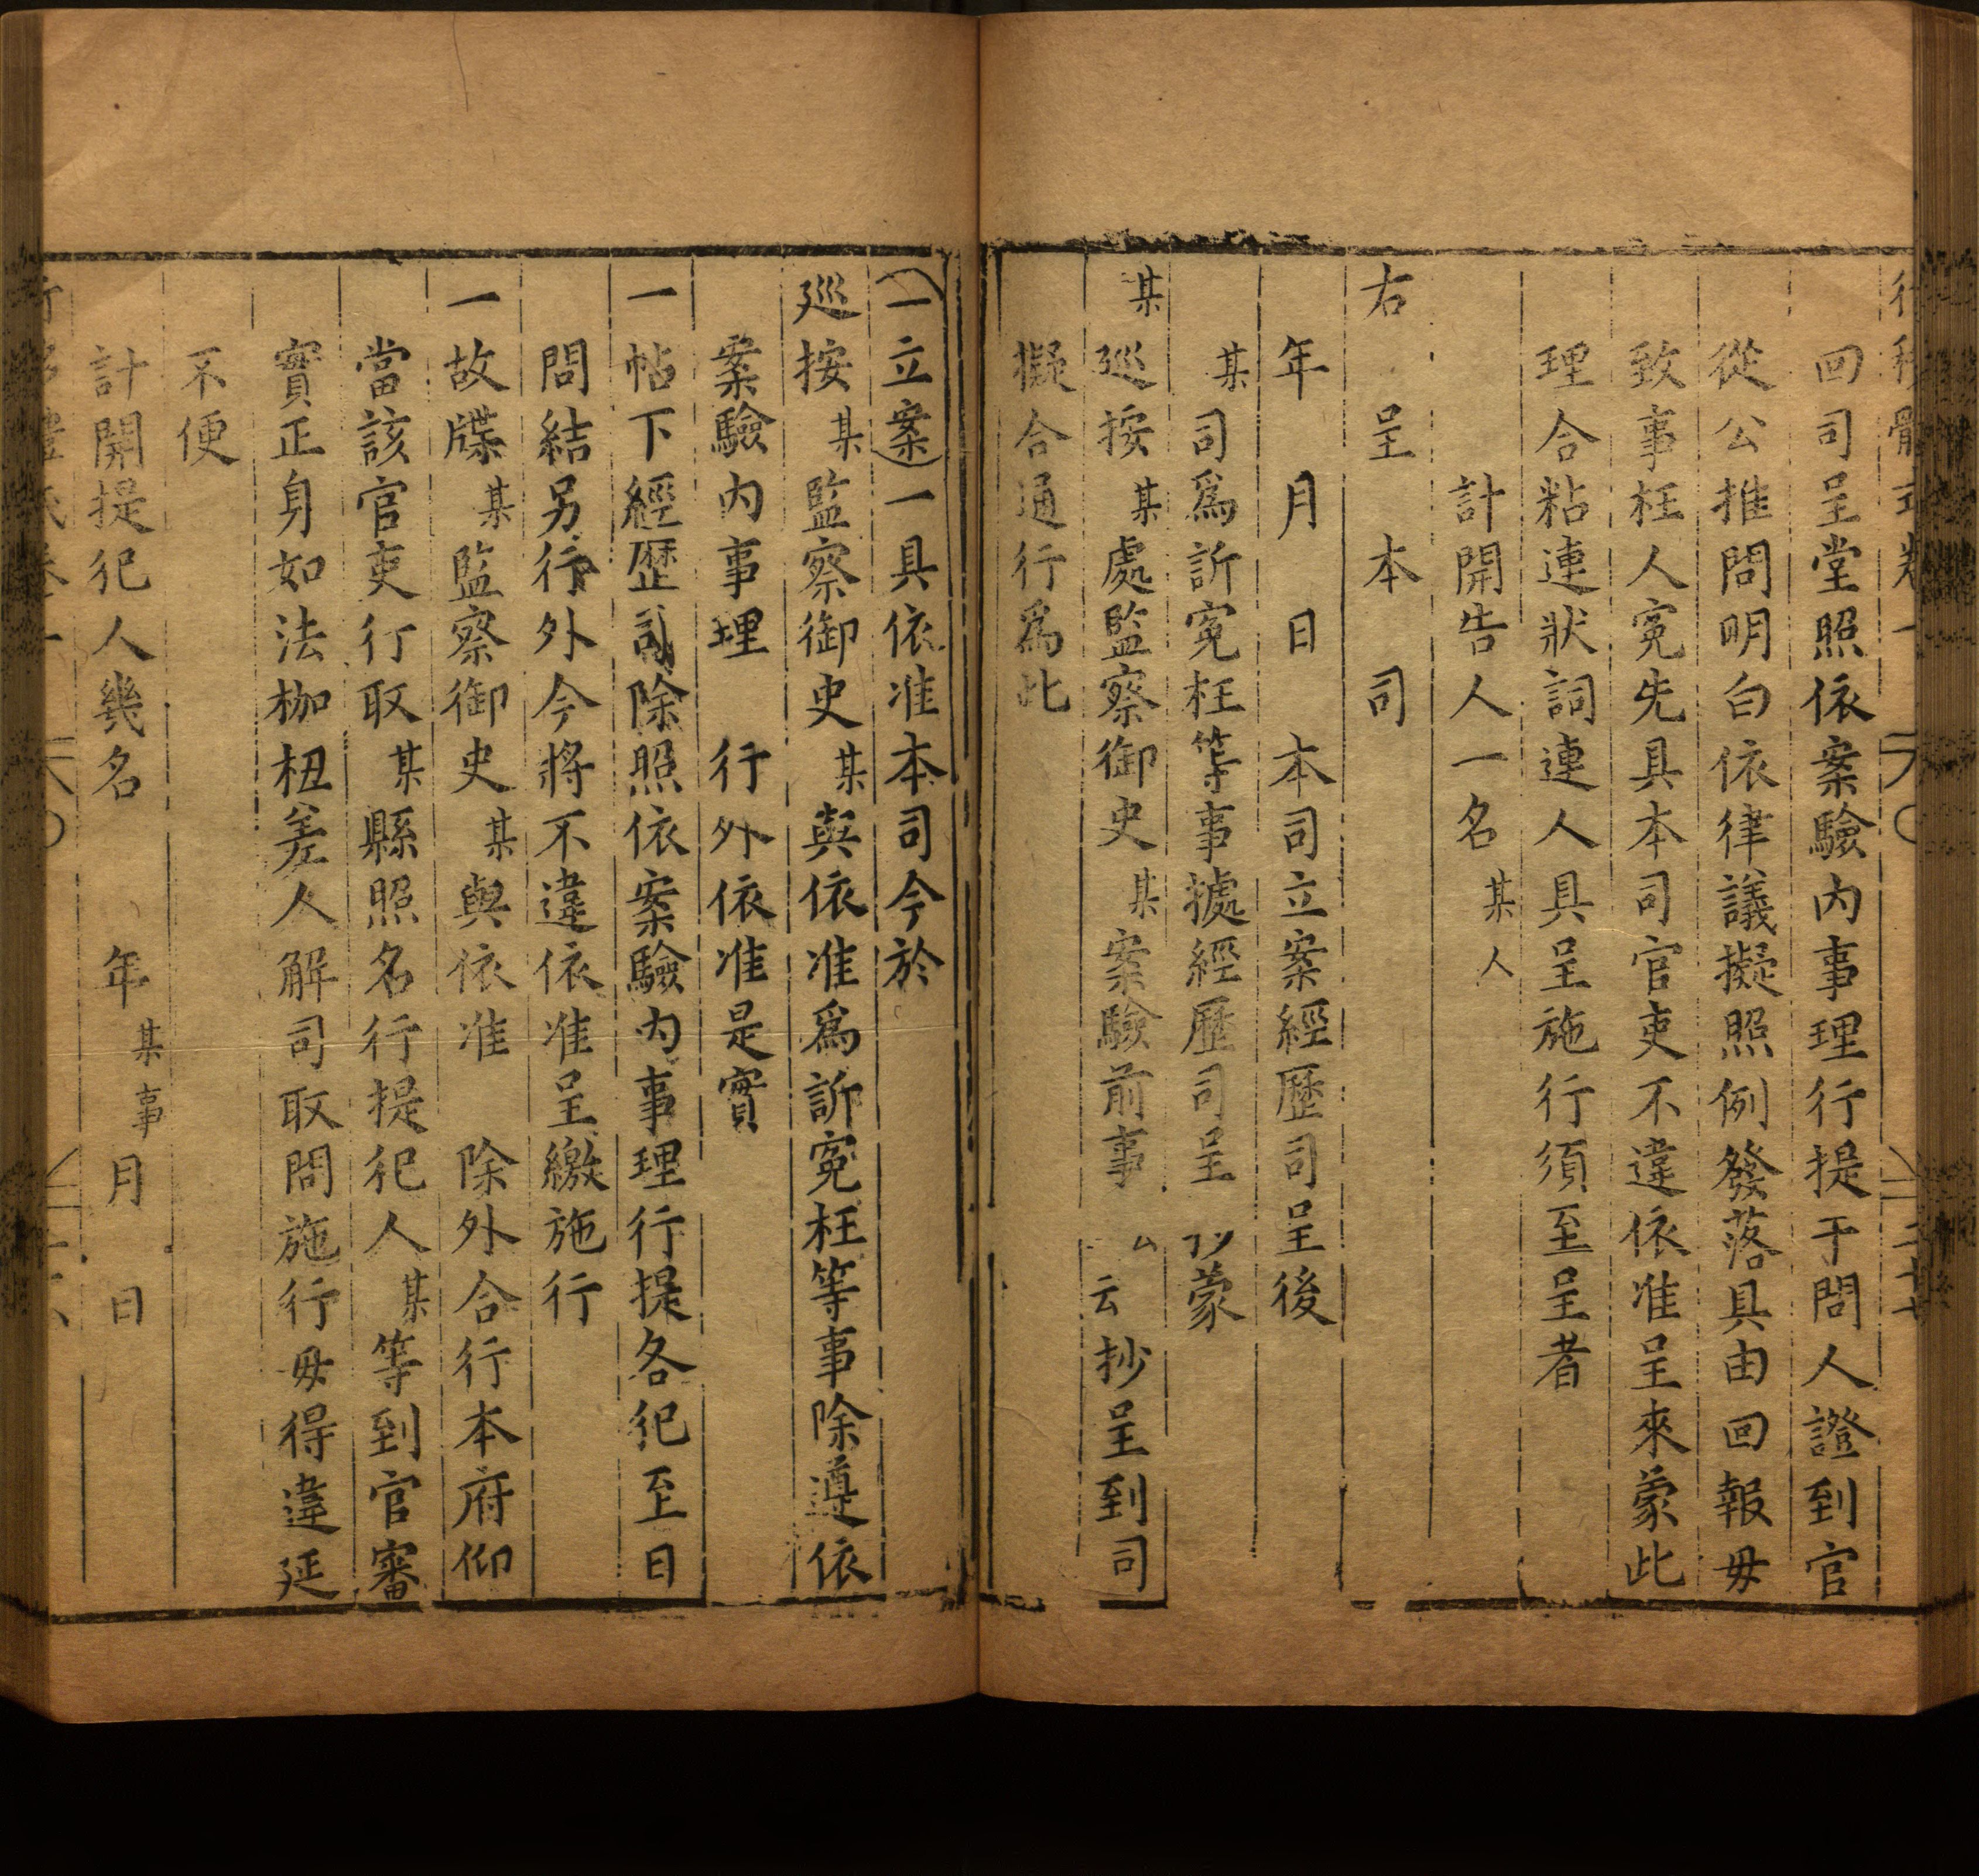 回司呈堂照依案驗内事理行提于問人證到官
從公推問明白依律議擬照例發落具由回報毋
致事枉人寃先具本司官吏不違依准呈來蒙此
理合粘連狀詞連人具呈施行須至呈者
計開告人一名某人
右呈本司
年月日本司立案經歷司呈後
某司爲訴寃枉等事據經歷司呈蒙
某巡按某處監察御史某案驗前事云抄呈到司
擬合通行爲此
一立案一具依准本司今於
巡按某監察御史某與依准爲訴寃枉等事除遵依
案驗内事理行外依准是實
一帖下經歷司除照依案驗内事理行提各犯至日
問結另行外今將不違依准呈繳施行
一故牒某監察御史某與依准除外合行本府仰
當該官吏行取某縣照名行提犯人某等到官審
實正身如法枷杻差人解司取問施行毋得違延
不便
計開提犯人幾名年某事月日